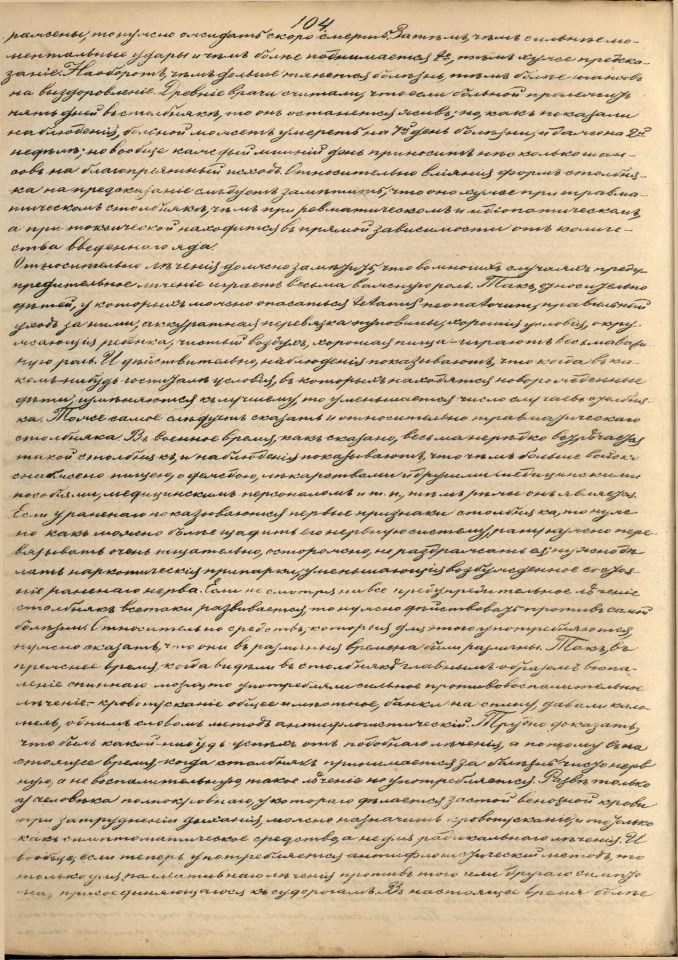 104
ражены, то нужно ожидать скоро смерть. Затѣмъ, чѣмъ сильнѣе мо-
ментальные удары и чѣмъ болѣе поднимается t°, тѣмъ хуже предска-
заніе. Наоборотъ, чѣмъ дольше тянется болѣзнь, тѣмъ болѣе шансовъ
на выздоровленіе. Древніе врачи считали, что если больной проживетъ
пять дней въ столбнякѣ, то онъ останется живъ; но, какъ показали
наблюденія, больной можетъ умереть на день болѣзни, и даже на 2й
недѣлѣ; но вообще каждый лишній день приноситъ нѣсколько шан-
совъ на благопріятный исходъ. Относительно вліянія формъ столбня-
ка на предсказаніе слѣдуетъ замѣтить, что оно хуже при травма-
тическомъ столбнякѣ, чѣмъ при ревматическомъ и идіопатическомъ,
а при токсической находится въ прямой зависимости отъ количе-
ства введеннаго яда.
Относительно лѣченія должно замѣтить, что во многихъ случаяхъ преду-
предительное лѣченіе играетъ весьма важную роль. Такъ, относительно
дѣтей, у которыхъ можно опасаться tetanus neonatorum, правильный
уходъ за ними, аккуратная перевязка пуповины, хорошія условія, окру-
жающія ребенка, чистый воздухъ, хорошая пища – играютъ весьма важ-
ную роль. И дѣйствительно, наблюденія показываютъ, что когда въ ка-
комъ-нибудь госпиталѣ условія, въ которыхъ находятся новорожденные
дѣти, измѣняются къ лучшему, то уменьшается число случаевъ столбня-
ка. Тоже самое слѣдуетъ сказать и относительно травматическаго
столбняка. Въ военное время, какъ сказано, весьма нерѣдко встрѣчается
такой столбнякъ, и наблюденія показываютъ, что чѣмъ больше войско
снабжено пищею, одеждою, лѣкарствами и другими медицинскими
пособіями, медицинскимъ персоналомъ и т. п., тѣмъ рѣже онъ является.
Если у раненаго показываются первые признаки столбняка, то нуж-
но какъ можно болѣе щадить его нервную систему, рану нужно пере-
вязывать очень тщательно, осторожно, не раздражать ея; нужно дѣ-
лать наркотическія припарки, уменьшающія возбужденное состоя-
ніе раненаго нерва. Если не смотря на все предупредительное лѣченіе
столбнякъ всетаки развивается, то нужно дѣйствовать противъ самой
болѣзни. Относительно средствъ, которыя для этого употребляются,
нужно сказать, что они въ различныя времена были различны. Такъ, въ
прежнее время, когда видѣли въ столбнякѣ главнымъ образомъ воспа-
леніе спиннаго мозга, то употребляли сильное противовоспалительное
лѣченіе – кровопусканіе общее и мѣстное, банки на спину, давали кало-
мель, однимъ словомъ методъ антифлогистическій. Трудно доказать,
что былъ какой-нибудь успѣхъ отъ подобнаго лѣченія, а потому въ на-
стоящее время, когда столбнякъ принимается за болѣзнь чисто нерв-
ную, а не воспалительную, такое лѣченіе не употребляется. Развѣ только
у человѣка полнокровнаго, у котораго дѣлается застой венозной крови
при затрудненіи дыханія, можно назначить кровопусканіе, и то только
какъ симптоматическое средство, а не для радикальнаго лѣченія. И
вообще, если теперь употребляется антифлогистическій методъ, то
только для палліативнаго лѣченія противъ того или другаго симпто-
ма, присоединяющагося къ судорогамъ. Въ настоящее время болѣе